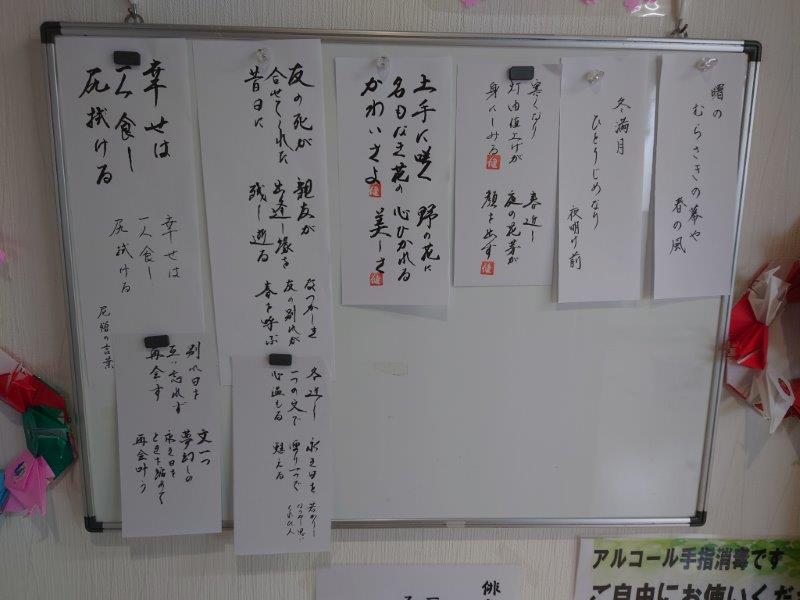 曙の
むらさきの幕や
春の風
冬満月
ひとりじめなり
夜明け前
寒くなり
灯油値上げが
身にしみる
春近し
庭の花芽が
顔を出す
土手に咲く
名もなき花の
かわいさよ
野の花に
心ひかれる
美しさ
友の死が
合せてくれた
昔日に
親友が
出逢し縁を
残し逝る
なつかしき
友の別れが
春を呼ぶ
幸せは
一人食し
尻拭ける
幸せは
一人食し
尻拭ける
尼僧の言葉
冬近し
一つの文で
心温もる
永き日を
便り一つで
甦える
別れ日を
互いに忘れず
再会す
文一つ
夢幻しの
永き日を
ときを縮めて
再会叶う
アルコール手指消毒です
ご自由にお使いくだ
俳